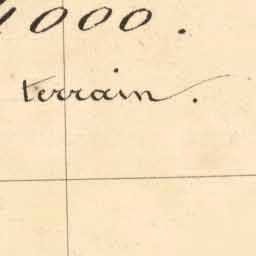 000.
terrain.